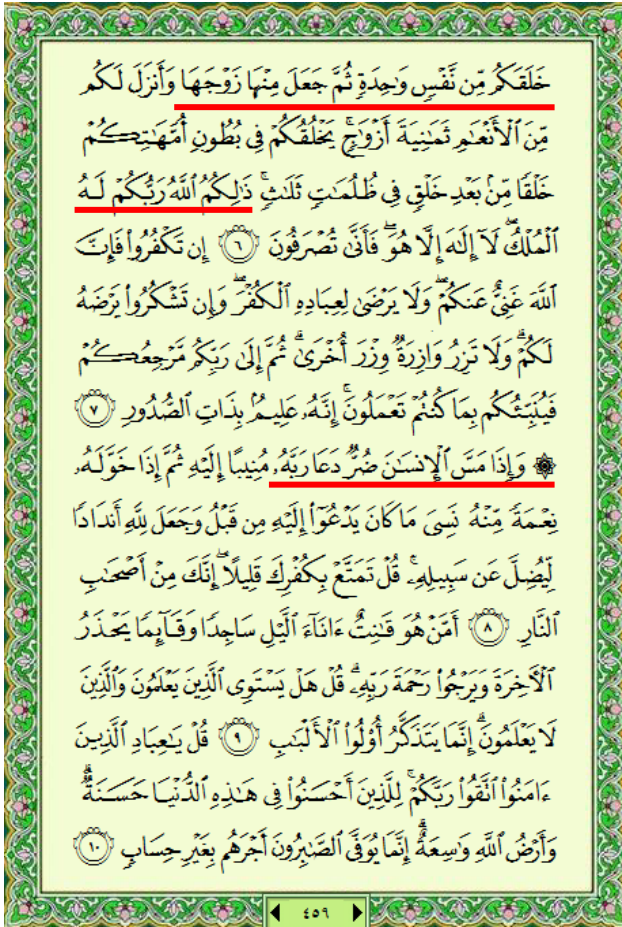 خَلَقَكُم مِّن نَّفْسٍ وَٰحِدَةٍ ثُمَّ جَعَلَ مِنْهَا زَوْجَهَا وَأَنزَلَ لَكُم
مِّنَ ٱلْأَنْعَٰمِ ثَمَٰنِيَةَ أَزْوَٰجٍ ۚ يَخْلُقُكُمْ فِى بُطُونِ أُمَّهَٰتِكُمْ
خَلْقًا مِّنۢ بَعْدِ خَلْقٍ فِى ظُلُمَٰتٍ ثَلَٰثٍ ۚ ذَٰلِكُمُ ٱللَّهُ رَبُّكُمْ لَهُ
ٱلْمُلْكُ ۖ لَآ إِلَٰهَ إِلَّا هُوَ ۖ فَأَنَّىٰ تُصْرَفُونَ ٦ إِن تَكْفُرُوا۟ فَإِنَّ
ٱللَّهَ غَنِىٌّ عَنكُمْ ۖ وَلَا يَرْضَىٰ لِعِبَادِهِ ٱلْكُفْرَ ۖ وَإِن تَشْكُرُوا۟ يَرْضَهُ
لَكُمْ ۗ وَلَا تَزِرُ وَازِرَةٌ وِزْرَ أُخْرَىٰ ۗ ثُمَّ إِلَىٰ رَبِّكُم مَّرْجِعُكُمْ
فَيُنَبِّئُكُم بِمَا كُنتُمْ تَعْمَلُونَ ۚ إِنَّهُۥ عَلِيمٌۢ بِذَاتِ ٱلصُّدُورِ ٧
۞ وَإِذَا مَسَّ ٱلْإِنسَٰنَ ضُرٌّ دَعَا رَبَّهُۥ مُنِيبًا إِلَيْهِ ثُمَّ إِذَا خَوَّلَهُۥ
نِعْمَةً مِّنْهُ نَسِىَ مَا كَانَ يَدْعُوٓا۟ إِلَيْهِ مِن قَبْلُ وَجَعَلَ لِلَّهِ أَندَادًا
لِّيُضِلَّ عَن سَبِيلِهِۦ ۚ قُلْ تَمَتَّعْ بِكُفْرِكَ قَلِيلًا ۖ إِنَّكَ مِنْ أَصْحَٰبِ
ٱلنَّارِ ٨ أَمَّنْ هُوَ قَٰنِتٌ ءَانَآءَ ٱلَّيْلِ سَاجِدًا وَقَآئِمًا يَحْذَرُ
ٱلْءَاخِرَةَ وَيَرْجُوا۟ رَحْمَةَ رَبِّهِۦ ۗ قُلْ هَلْ يَسْتَوِى ٱلَّذِينَ يَعْلَمُونَ وَٱلَّذِينَ
لَا يَعْلَمُونَ ۗ إِنَّمَا يَتَذَكَّرُ أُو۟لُوا۟ ٱلْأَلْبَٰبِ ٩ قُلْ يَٰعِبَادِ ٱلَّذِينَ
ءَامَنُوا۟ ٱتَّقُوا۟ رَبَّكُمْ ۚ لِلَّذِينَ أَحْسَنُوا۟ فِى هَٰذِهِ ٱلدُّنْيَا حَسَنَةٌ ۗ
وَأَرْضُ ٱللَّهِ وَٰسِعَةٌ ۗ إِنَّمَا يُوَفَّى ٱلصَّٰبِرُونَ أَجْرَهُم بِغَيْرِ حِسَابٍ ١٠
٤٥٩